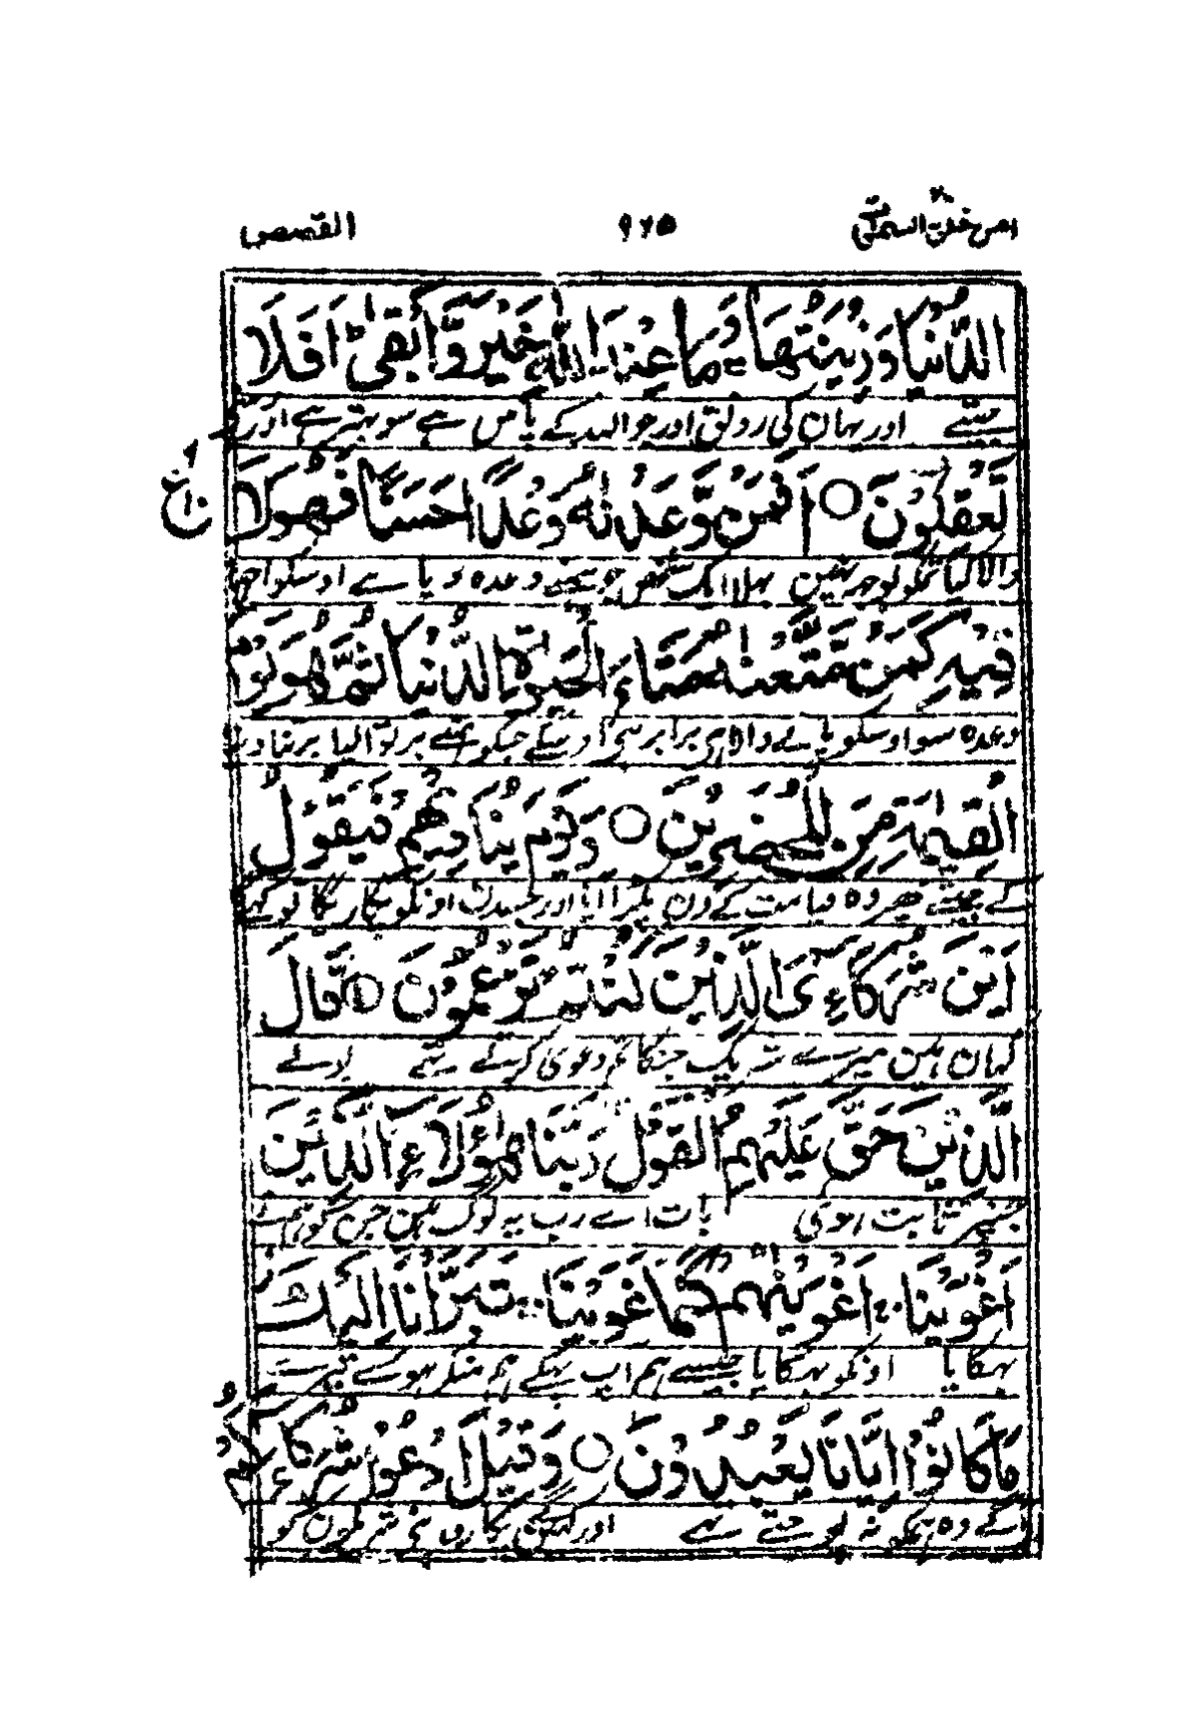 امن خلق السموت ۲۰ ۹۲۵ القصص
الدُّنْيَا وَزِيْنَتُهَا ۚ وَمَا عِنْدَ اللّٰهِ خَيْرٌ وَّاَبْقٰى ؕ اَفَلَا
جیتے اور یہاں کی رونق اور جو اللہ کے پاس ہے سو بہتر ہے اور
تَعْقِلُوْنَ ○ اَفَمَنْ وَّعَدْنٰهُ وَعْدًا حَسَنًا فَهُوَ لَا
والا کیا تمکو بوجھ نہین بھلا ایک شخص جو ہمنے وعدہ دیا ہے اوسکو اچھا
فِيْهِ كَمَنْ مَّتَّعْنٰهُ مَتَاعَ الْحَيٰوةِ الدُّنْيَا ثُمَّ هُوَ يَوْمَ
وعدہ سو اوسکو پانے والا ہی برابر ہی اوسکے جسکو ہمنے برتوا لیا برتنا دنیا
الْقِيٰمَةِ مِنَ الْمُحْضَرِيْنَ ○ وَيَوْمَ يُنَادِيْهِمْ فَيَقُوْلُ
کے جیتے پھر وہ قیامت کے دن پکڑا آیا اور جسدن اونکو پکاریگا تو کہیگا
اَيْنَ شُرَكَآءِىَ الَّذِيْنَ كُنْتُمْ تَزْعُمُوْنَ ○ قَالَ
کہان ہین میرے شریک جنکا تم دعوی کرتے تھے بولے
الَّذِيْنَ حَقَّ عَلَيْهِمُ الْقَوْلُ رَبَّنَا هٰٓؤُلَآءِ الَّذِيْنَ
جنپر ثابت ہوی بات اے رب یہ لوگ ہین جن کو ہمنے
اَغْوَيْنَا ۚ اَغْوَيْنٰهُمْ كَمَا غَوَيْنَا ۚ تَبَرَّاْنَا اِلَيْكَ
بہکایا اونکو بہکایا جیسے ہم آپ بہکے ہم منکر ہوے تیرے
مَا كَانُوْٓا اِيَّانَا يَعْبُدُوْنَ ○ وَقِيْلَ ادْعُوْا شُرَكَآءَكُمْ
آگے وہ ہمکو نہ پوجتے تھے اور کہینگے پکارو اپنی شریکون کو